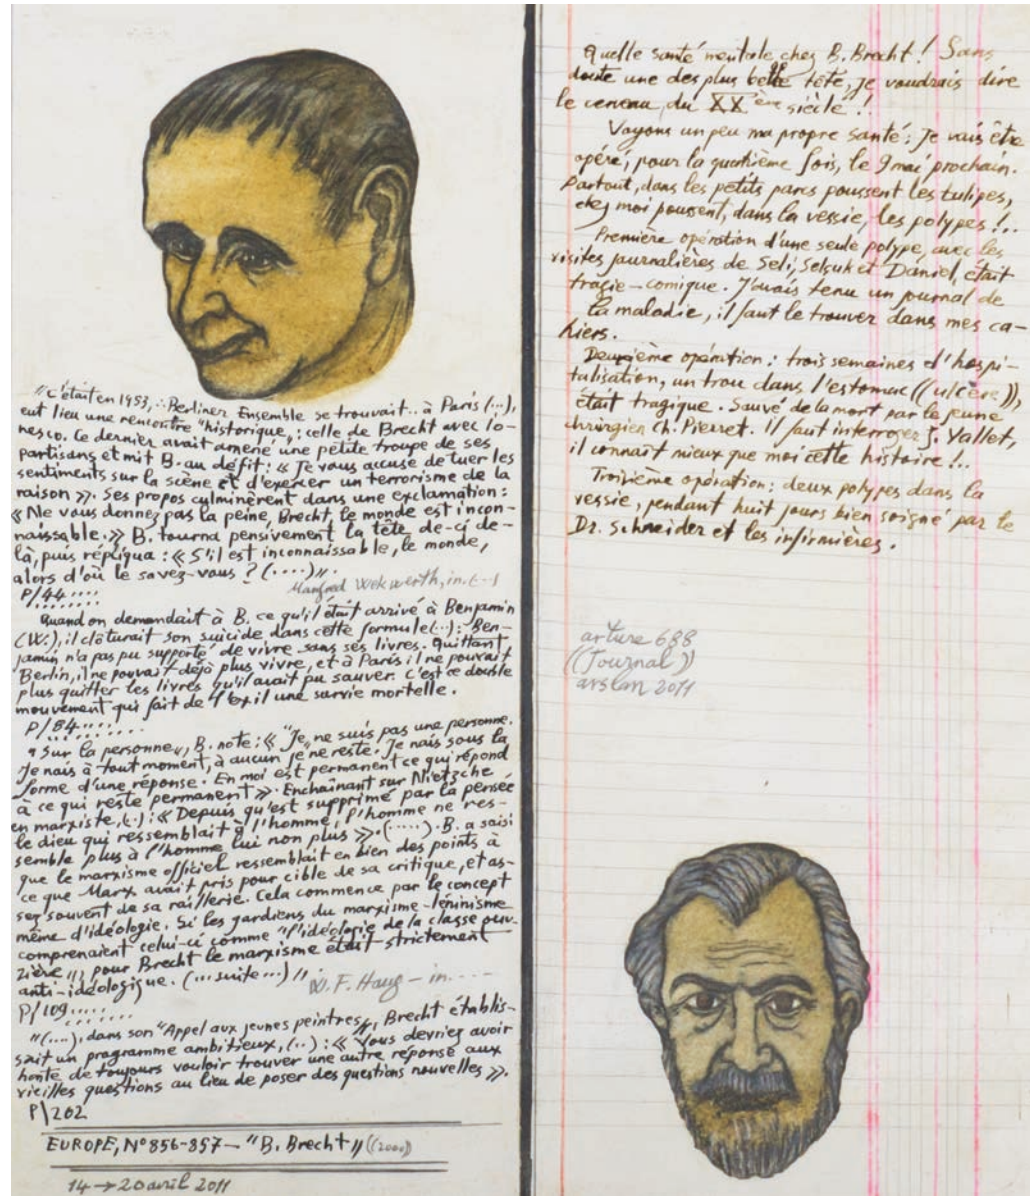 "C'était en 1953, :. Berliner Ensemble se trouvait.. à Paris (...),
eut lieu une rencontre "historique,, : celle de Brecht avec Io-
nesco. Ce dernier avait amené une petite troupe de ses
partisans et mit B. au défit: « Je vous accuse de tuer les
sentiments sur la scène et d'exercer un terrorisme de la
raison ». Ses propos culminèrent dans une exclamation :
« Ne vous donnez pas la peine, Brecht, le monde est incon-
naissable.» B. tourna pensivement la tête, de-ci de-
là, puis répliqua : « S'il est inconnaissable, le monde,
alors d'où le savez-vous ? (....),,.
P/44.....
Manfred Wekwerth, in. (...)
Quand on demandait à B. ce qu'il était arrivé à Benjamin
(W.), il clôturait son suicide dans cette formule (...): Ben-
jamin n'a pas pu supporté de vivre sans ses livres. Quittant
Berlin, il ne pouvait déjà plus vivre, et à Paris il ne pouvait
plus quitter les livres qu'il avait pu sauver. C'est ce double
mouvement qui fait de l'exil une survie mortelle.
P/84.......
"Sur la personne,,, B. note: « Je ne suis pas une personne.
Je nais à tout moment, à aucun je ne reste. Je nais sous la
forme d'une réponse. En moi est permanent ce qui répond
à ce qui reste permanent ». Enchaînant sur Nietzche
en marxiste, (.) : « Depuis qu'est supprimé par la pensée
le dieu qui ressemblait à l'homme, l'homme ne res-
semble plus à l'homme lui non plus ». (.....). B. a saisi
que le marxisme officiel ressemblait en bien des points à
ce que Marx avait pris pour cible de sa critique, et as-
sez souvent de sa raillerie. Cela commence par le concept
même d'idéologie. Si les gardiens du marxisme-léninisme
comprenaient celui-ci comme "l'idéologie de la classe ouv-
rière,,, pour Brecht le marxisme était strictement
anti-idéologique. (...suite...) ,,
W. F. Haug - in. ....
P/109.....
"(....), dans son "Appel aux jeunes peintres,,, Brecht établis-
sait un programme ambitieux, (..) : « Vous devriez avoir
honte de toujours vouloir trouver une autre réponse aux
vieilles questions au lieu de poser des questions nouvelles ».
P/202
EUROPE, N° 856-857 - "B. Brecht,, ((2000))
14 → 20 avril 2011
Quelle santé mentale chez B. Brecht ! Sans
doute une des plus belle tête, je voudrais dire
le cerveau du XXème siècle !.
Voyons un peu ma propre santé : Je vais être
opéré, pour la quatrième fois, le 9 mai prochain.
Partout, dans les petits parcs poussent les tulipes,
chez moi poussent, dans la vessie, les polypes !..
Première opération d'une seule polype, avec les
visites journalières de Seli, Selçuk et Daniel, était
tragie-comique. J'avais tenu un journal de
la maladie, il faut le trouver dans mes ca-
hiers.
Deuxième opération : trois semaines d'hospi-
talisation, un trou dans l'estomac ((ulcère)),
était tragique. Sauvé de la mort par le jeune
chirurgien Ch. Pierret. Il faut interroger J. Vallet,
il connait mieux que moi cette histoire !..
Troisième opération : deux polypes dans la
vessie, pendant huit jours bien soigné par le
Dr. Schneider et les infirmières.
arture 688
((Journal))
arslan 2011